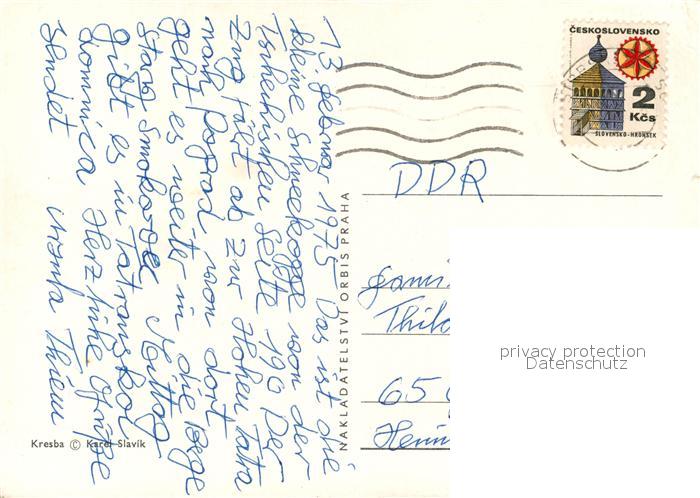 13. Februar 1975 Das ist die
kleine Schneekoppe von der
Tschechischen Seite
Zug fährt ab zur Hohen Tatra
nach Poprad von dort
geht es weiter in die Berge
Stary Smokovec Mittag
gibt es in Tatranska
Lomnica Herzliche Grüße
sendet Ursula Thiem
Kresba © Karel Slavík
NAKLADATELSTVÍ ORBIS PRAHA
ČESKOSLOVENSKO
2
Kčs
SLOVENSKO-HRONSEK
DDR
Thilo
65
privacy protection
Datenschutz